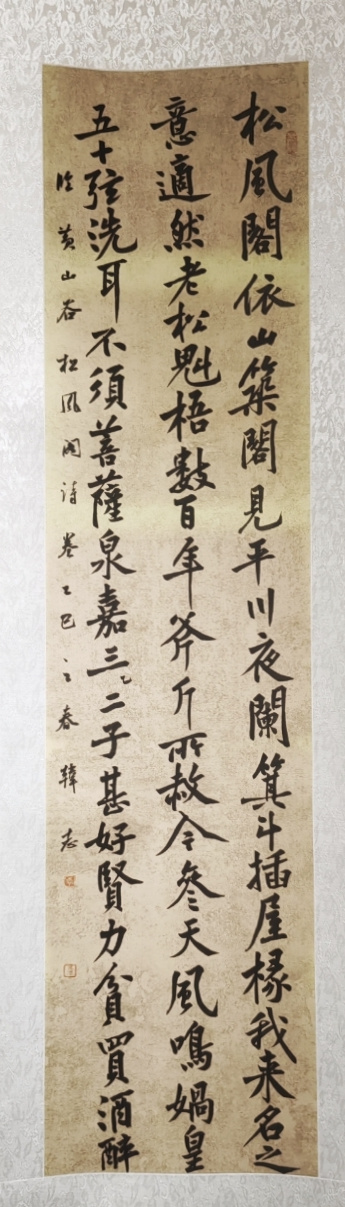 松風閣依山築閣見平川夜闌箕斗插屋椽我来名之
意適然老松魁梧數百年斧斤所赦令參天風鳴媧皇
五十弦洗耳不須菩薩泉嘉三二子甚好賢力貧買酒醉
临黄山谷松風阁诗卷乙巳之春韓志